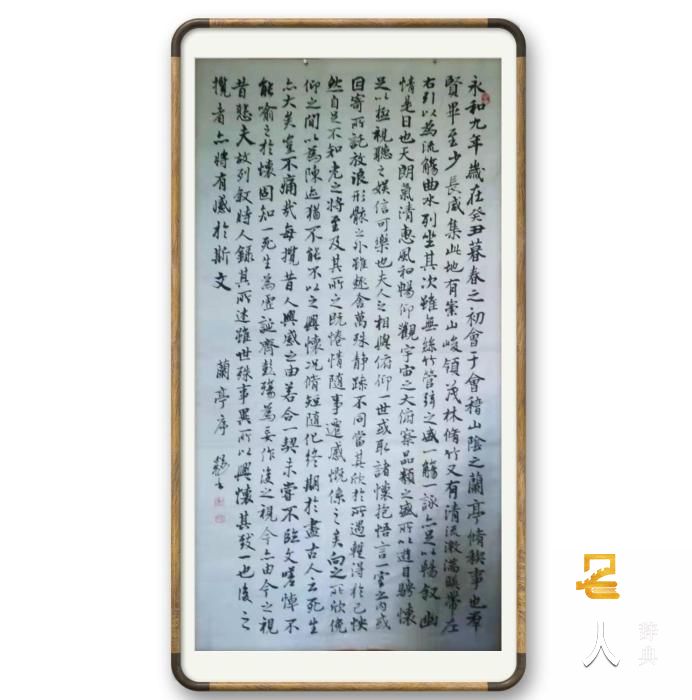 永和九年歲在癸丑暮春之初會于會稽山陰之蘭亭脩稧事也羣
賢畢至少長咸集此地有崇山峻領茂林脩竹又有清流激湍暎帶左
右引以為流觴曲水列坐其次雖無絲竹管弦之盛一觴一詠亦足以暢叙幽
情是日也天朗氣清惠風和暢仰觀宇宙之大俯察品類之盛所以遊目騁懷
足以極視聽之娛信可樂也夫人之相與俯仰一世或取諸懷抱悟言一室之內或
因寄所託放浪形骸之外雖趣舍萬殊靜躁不同當其欣於所遇蹔得於己怏
然自足不知老之將至及其所之既惓情隨事遷感慨係之矣向之所欣俛
仰之間以為陳迹猶不能不以之興懷況脩短隨化終期於盡古人云死生
亦大矣豈不痛哉每攬昔人興感之由若合一契未嘗不臨文嗟悼不
能喻之於懷固知一死生為虛誕齊彭殤為妄作後之視今亦由今之視
昔悲夫故列叙時人錄其所述雖世殊事異所以興懷其致一也後之
攬者亦將有感於斯文
蘭亭序
名人
辞典